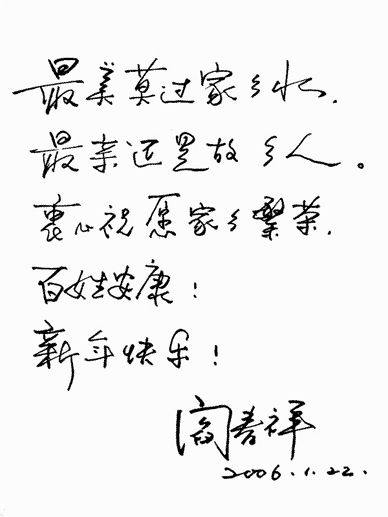 最美莫过家乡水,
最亲还是故乡人。
衷心祝愿家乡繁荣,
百姓安康!
新年快乐!
阎春祥
2006.1.22.